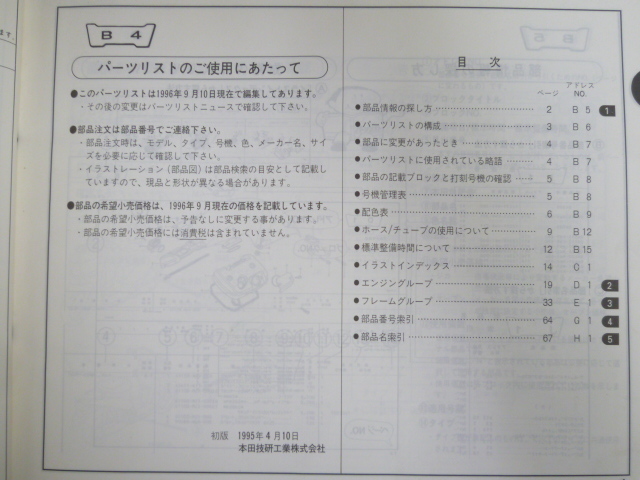 B 4
パーツリストのご使用にあたって
●このパーツリストは1996年9月10日現在で編集してあります。
・その後の変更はパーツリストニュースで確認して下さい。
●部品注文は部品番号でご連絡下さい。
・部品注文時は、モデル、タイプ、号機、色、メーカー名、サイ
ズを必要に応じて確認して下さい。
・イラストレーション(部品図)は部品検索の目安として記載し
ていますので、現品と形状が異なる場合があります。
●部品の希望小売価格は、1996年9月現在の価格を記載しています。
・部品の希望小売価格は、予告なしに変更する事があります。
・部品の希望小売価格には消費税は含まれていません。
初版 1995年4月10日
本田技研工業株式会社
目 次
ページ アドレスNO.
●部品情報の探し方 2 B 5 1
●パーツリストの構成 3 B 6
●部品に変更があったとき 4 B 7
●パーツリストに使用されている略語 4 B 7
●部品の記載ブロックと打刻号機の確認 5 B 8
●号機管理表 5 B 8
●配色表 6 B 9
●ホース/チューブの使用について 9 B 12
●標準整備時間について 12 B 15
●イラストインデックス 14 C 1
●エンジングループ 19 D 1 2
●フレームグループ 33 E 1 3
●部品番号索引 64 G 1 4
●部品名索引 67 H 1 5